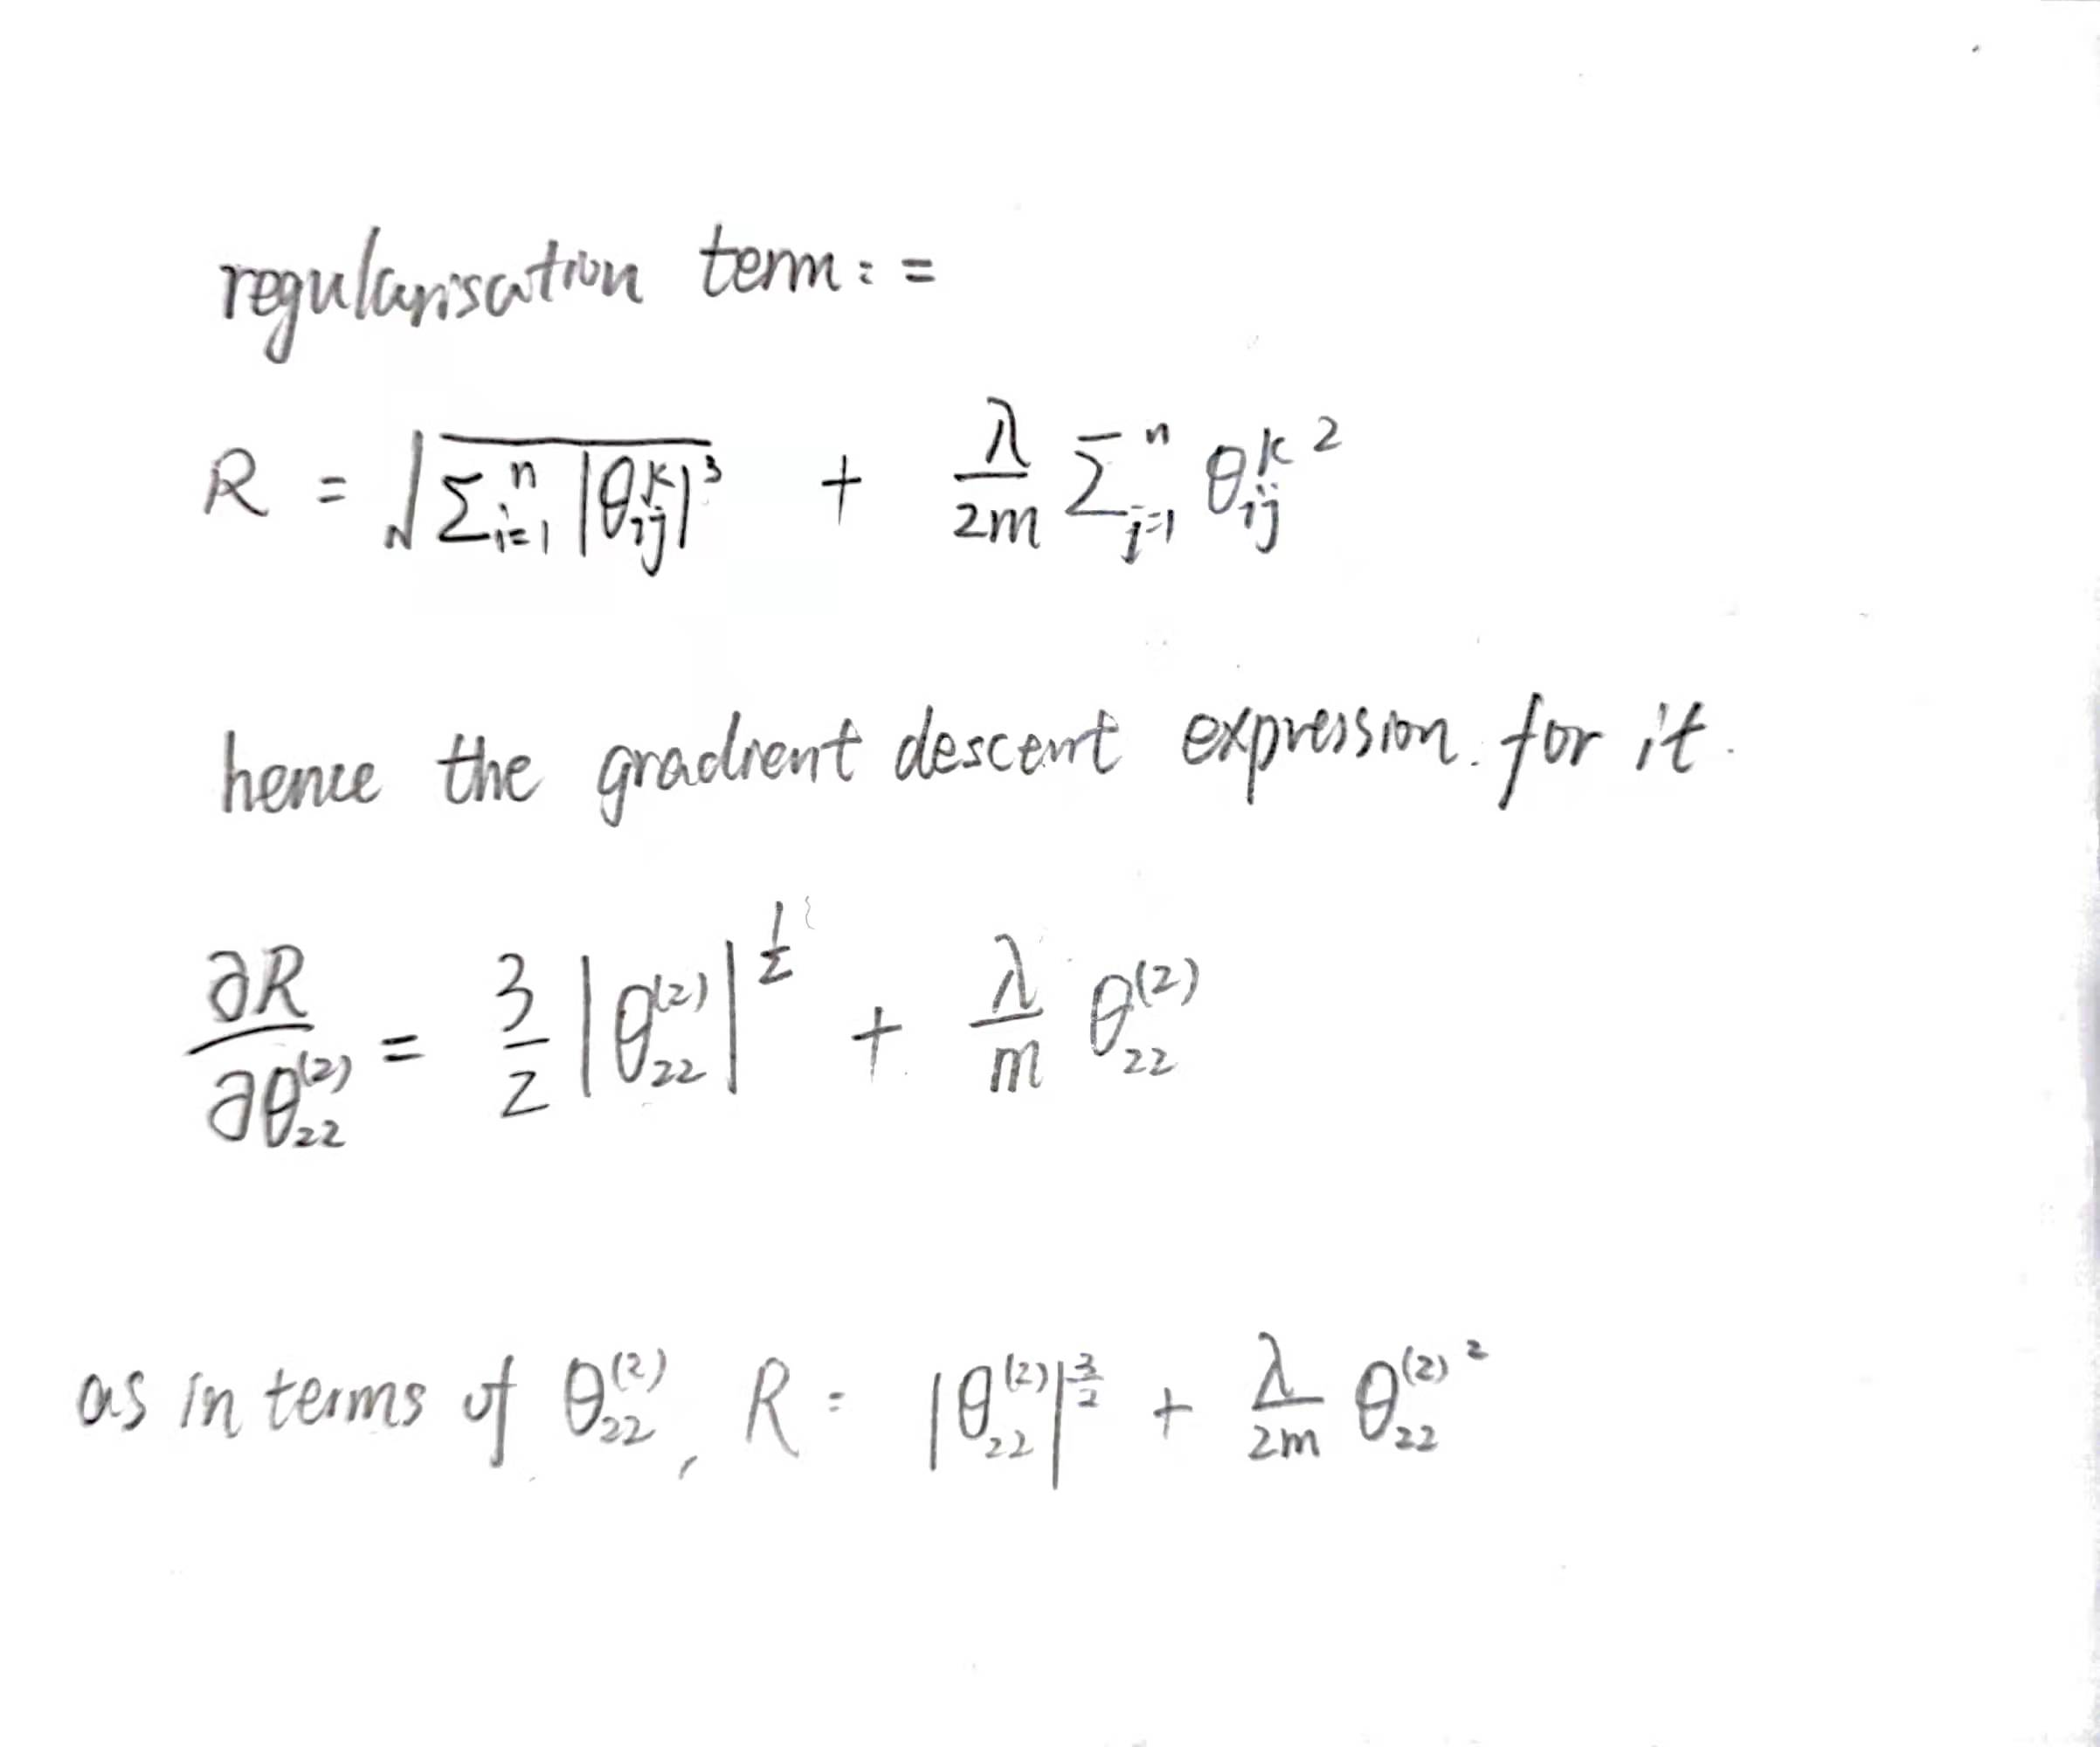 regularisation term: =
R = √(Σ_{i=1}^{n} |θ_{ij}^{k}|³) + λ/2m Σ_{j=1}^{n} θ_{ij}^{k}²
hence the gradient descent expression. for it.
∂R/∂θ_{22}^{(2)} = 3/2 |θ_{22}^{(2)}|^{1/2} + λ/m θ_{22}^{(2)}
as in terms of θ_{22}^{(2)}, R = |θ_{22}^{(2)}|^{3/2} + λ/2m θ_{22}^{(2)}²